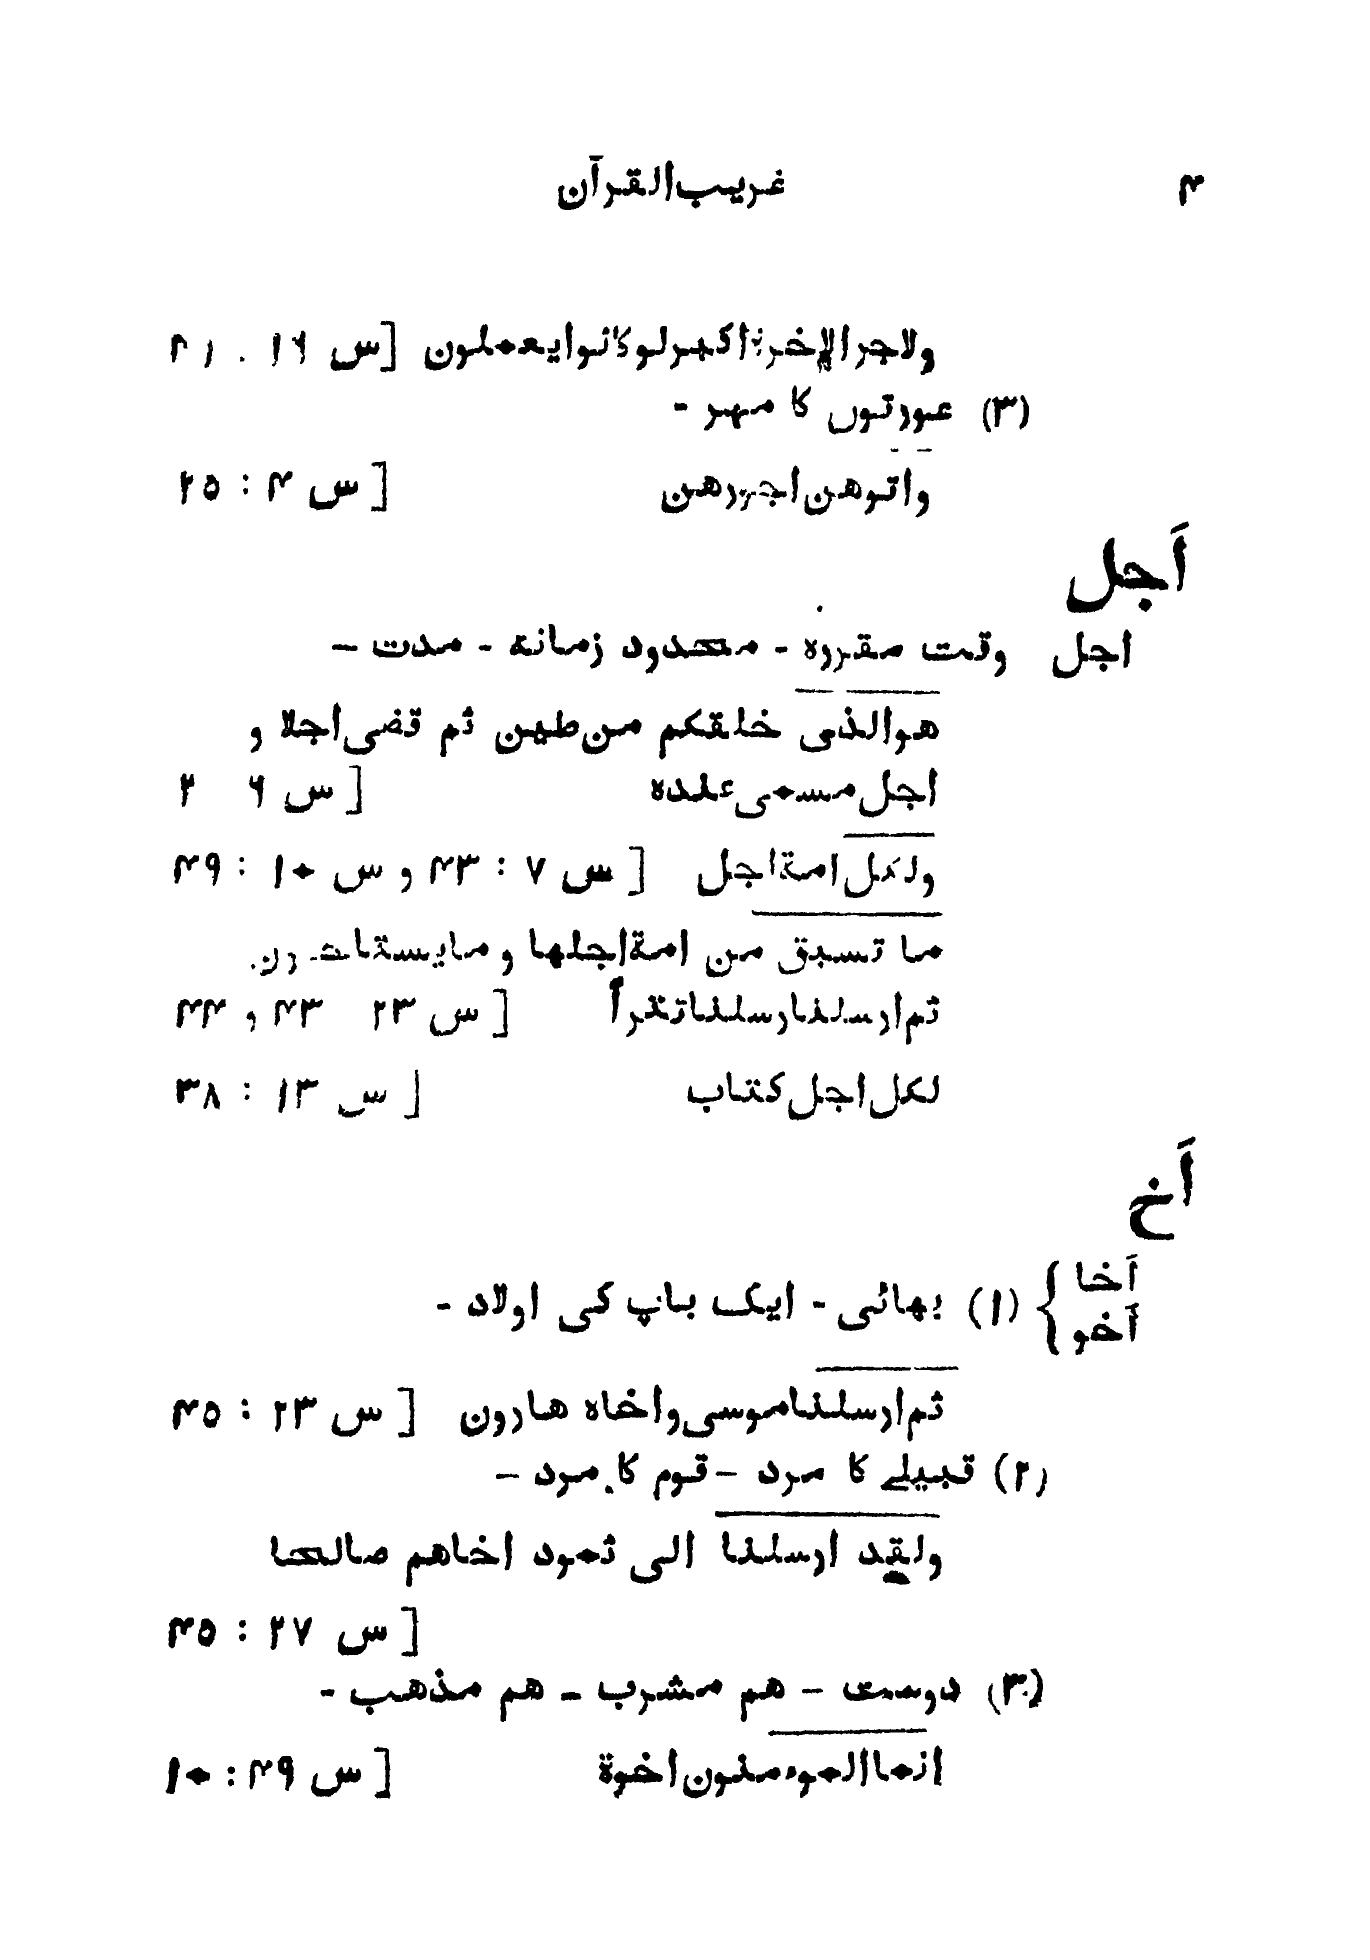 ۴ غریب القرآن
ولاجر الاخرۃ اکبر لو کانوا یعملون [س ۱۶ : ۴۱
(۳) عورتوں کا مہر -
واتوھن اجورھن [س ۴ : ۲۵
اَجل
اجل وقت مقررہ - معدود زمانہ - مدت -
ھوالذی خلقکم من طین ثم قضی اجلا و
اجل مسمی عندہ [س ۶ ۲
ولکل امۃ اجل [س ۷ : ۴۳ و س ۱۰ : ۴۹
ما تسبق من امۃ اجلھا و مایستاخرون.
ثم ارسلنا رسلنا تترأ [س ۲۳ ۴۳ و ۴۴
لکل اجل کتاب [س ۱۳ : ۳۸
اَخ
اَخا
اَخو } (۱) بھائی - ایک باپ کی اولاد -
ثم ارسلنا موسی و اخاہ ھارون [س ۲۳ : ۴۵
(۲) قبیلے کا مرد - قوم کا مرد -
ولقد ارسلنا الی ثمود اخاھم صالحا
[س ۲۷ : ۴۵
(۳) دوست - ھم مشرب - ھم مذھب -
انما الموءمنون اخوۃ [س ۴۹ : ۱۰